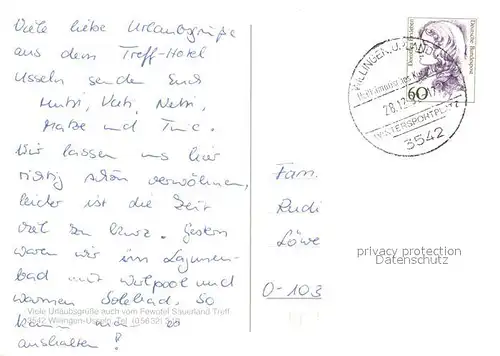 Viele liebe Urlaubsgrüße
aus dem Treff-Hotel
Usseln senden Euch
Mutti, Vati, Netti,
Matze und
Wir lassen uns hier
richtig schön verwöhnen,
leider ist die Zeit
viel zu kurz. Gestern
waren wir im Lagunen-
bad mit Wirlpool und
warmen Solebad. So
kann man es
aushalten!
Viele Urlaubsgrüße auch vom Fewotel Sauerland Treff
3542 Willingen-Usseln, Tel. (05632)
Deutsche Bundespost
60
WILLINGEN
28.12.
WINTERSPORTPLATZ
3542
Fam.
Rudi
Löwe
O-103
privacy protection
Datenschutz